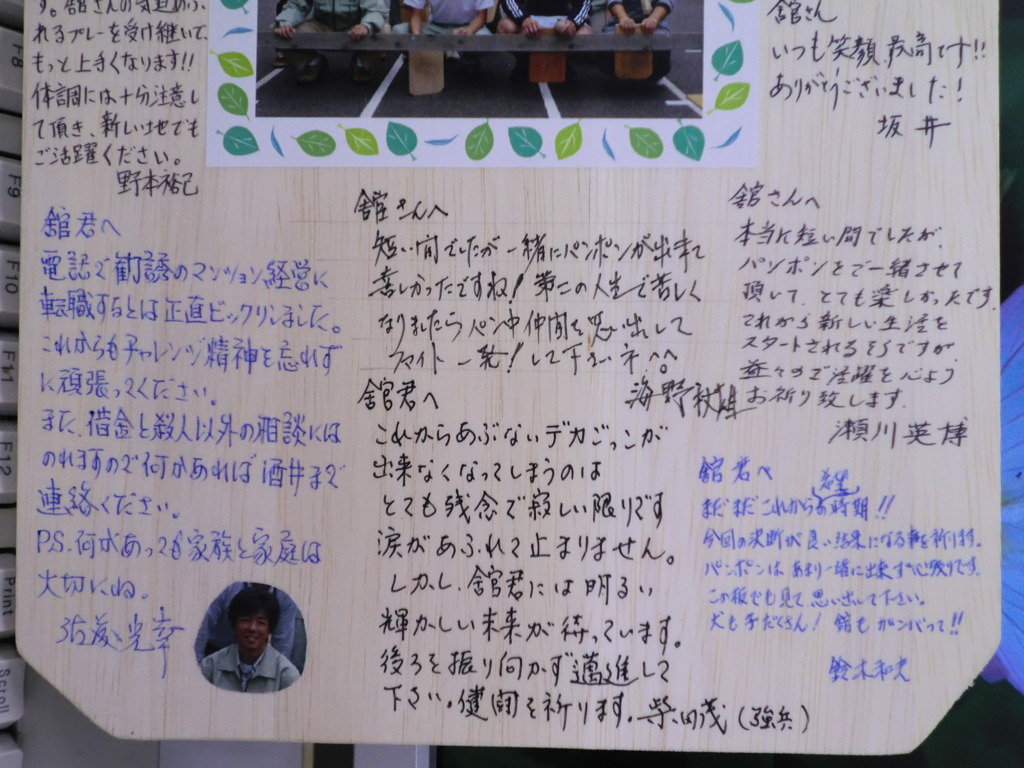 す。舘さんの気迫あふ
れるプレーを受け継いで、
もっと上手くなります!!
体調には十分注意し
て頂き、新しい地でも
ご活躍ください。
野本裕己
舘さん
いつも笑顔最高です!!
ありがとうございました!
坂井
舘君へ
電話で勧誘のマンション経営に
転職するとは正直ビックリしました。
これからもチャレンジ精神を忘れず
に頑張ってください。
また、借金と殺人以外の相談には
のれますので何かあれば酒井まで
連絡ください。
P.S.何があっても家族と家庭は
大切にね。
光幸
舘さんへ
短い間でしたが一緒にパンポンが出来て
喜しかったですね!第二の人生で苦しく
なりましたらパン中仲間を思い出して
ファイト一発!して下さいネ^^
海野
舘君へ
これからあぶないデカごっこが
出来なくなってしまうのは
とても残念で寂しい限りです
涙があふれて止まりません。
しかし、舘君には明るい
輝かしい未来が待っています。
後ろを振り向かず邁進して
下さい。健闘を祈ります。柴田茂(強兵)
舘さんへ
本当に短い間でしたが、
パンポンをご一緒させて
頂いて、とても楽しかったです。
これから新しい生活を
スタートされるそうですが
益々のご活躍を心より
お祈り致します。
瀬川英博
舘君へ
まだまだこれから希望有時期!!
今回の決断が良い結果になる事を祈ります。
パンポンはあまり一緒に出来ず心残りです。
この板でも見て思い出して下さい。
犬も子だくさん!舘もガンバって!!
鈴木和夫
F8
F9
F10
F11
F12
Print
Scroll